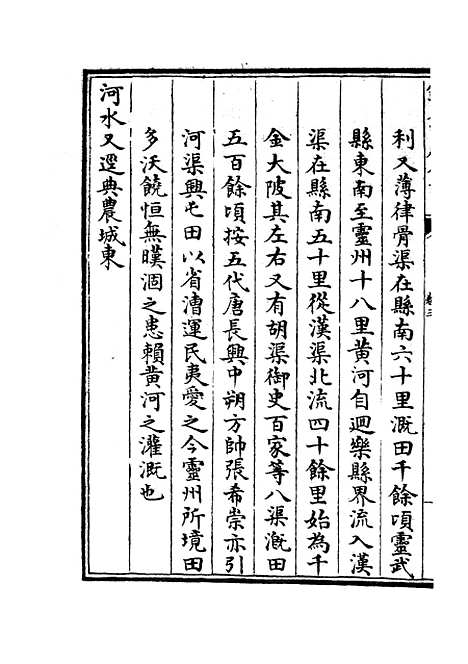 利又薄律骨渠在縣南六十里溉田千餘頃靈武
縣東南至靈州十八里黃河自迴樂縣界流入漢
渠在縣南五十里從漢渠北流四十餘里始為千
金大陂其左右又有胡渠御史百家等八渠溉田
五百餘頃按五代唐長興中朔方帥張希崇亦引
河渠興屯田以省漕運民夷愛之今靈州所境田
多沃饒恒無暵涸之患賴黃河之灌溉也
河水又逕典農城東
卷三